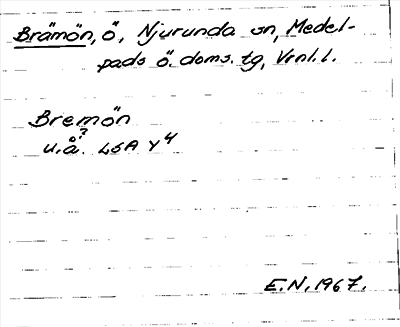 Brämön, ö, Njurunda sn, Medel-
pads ö. doms. tg, Vrnl. l.
Bremön
?
u.å. LSA Y4
E.N. 1967.